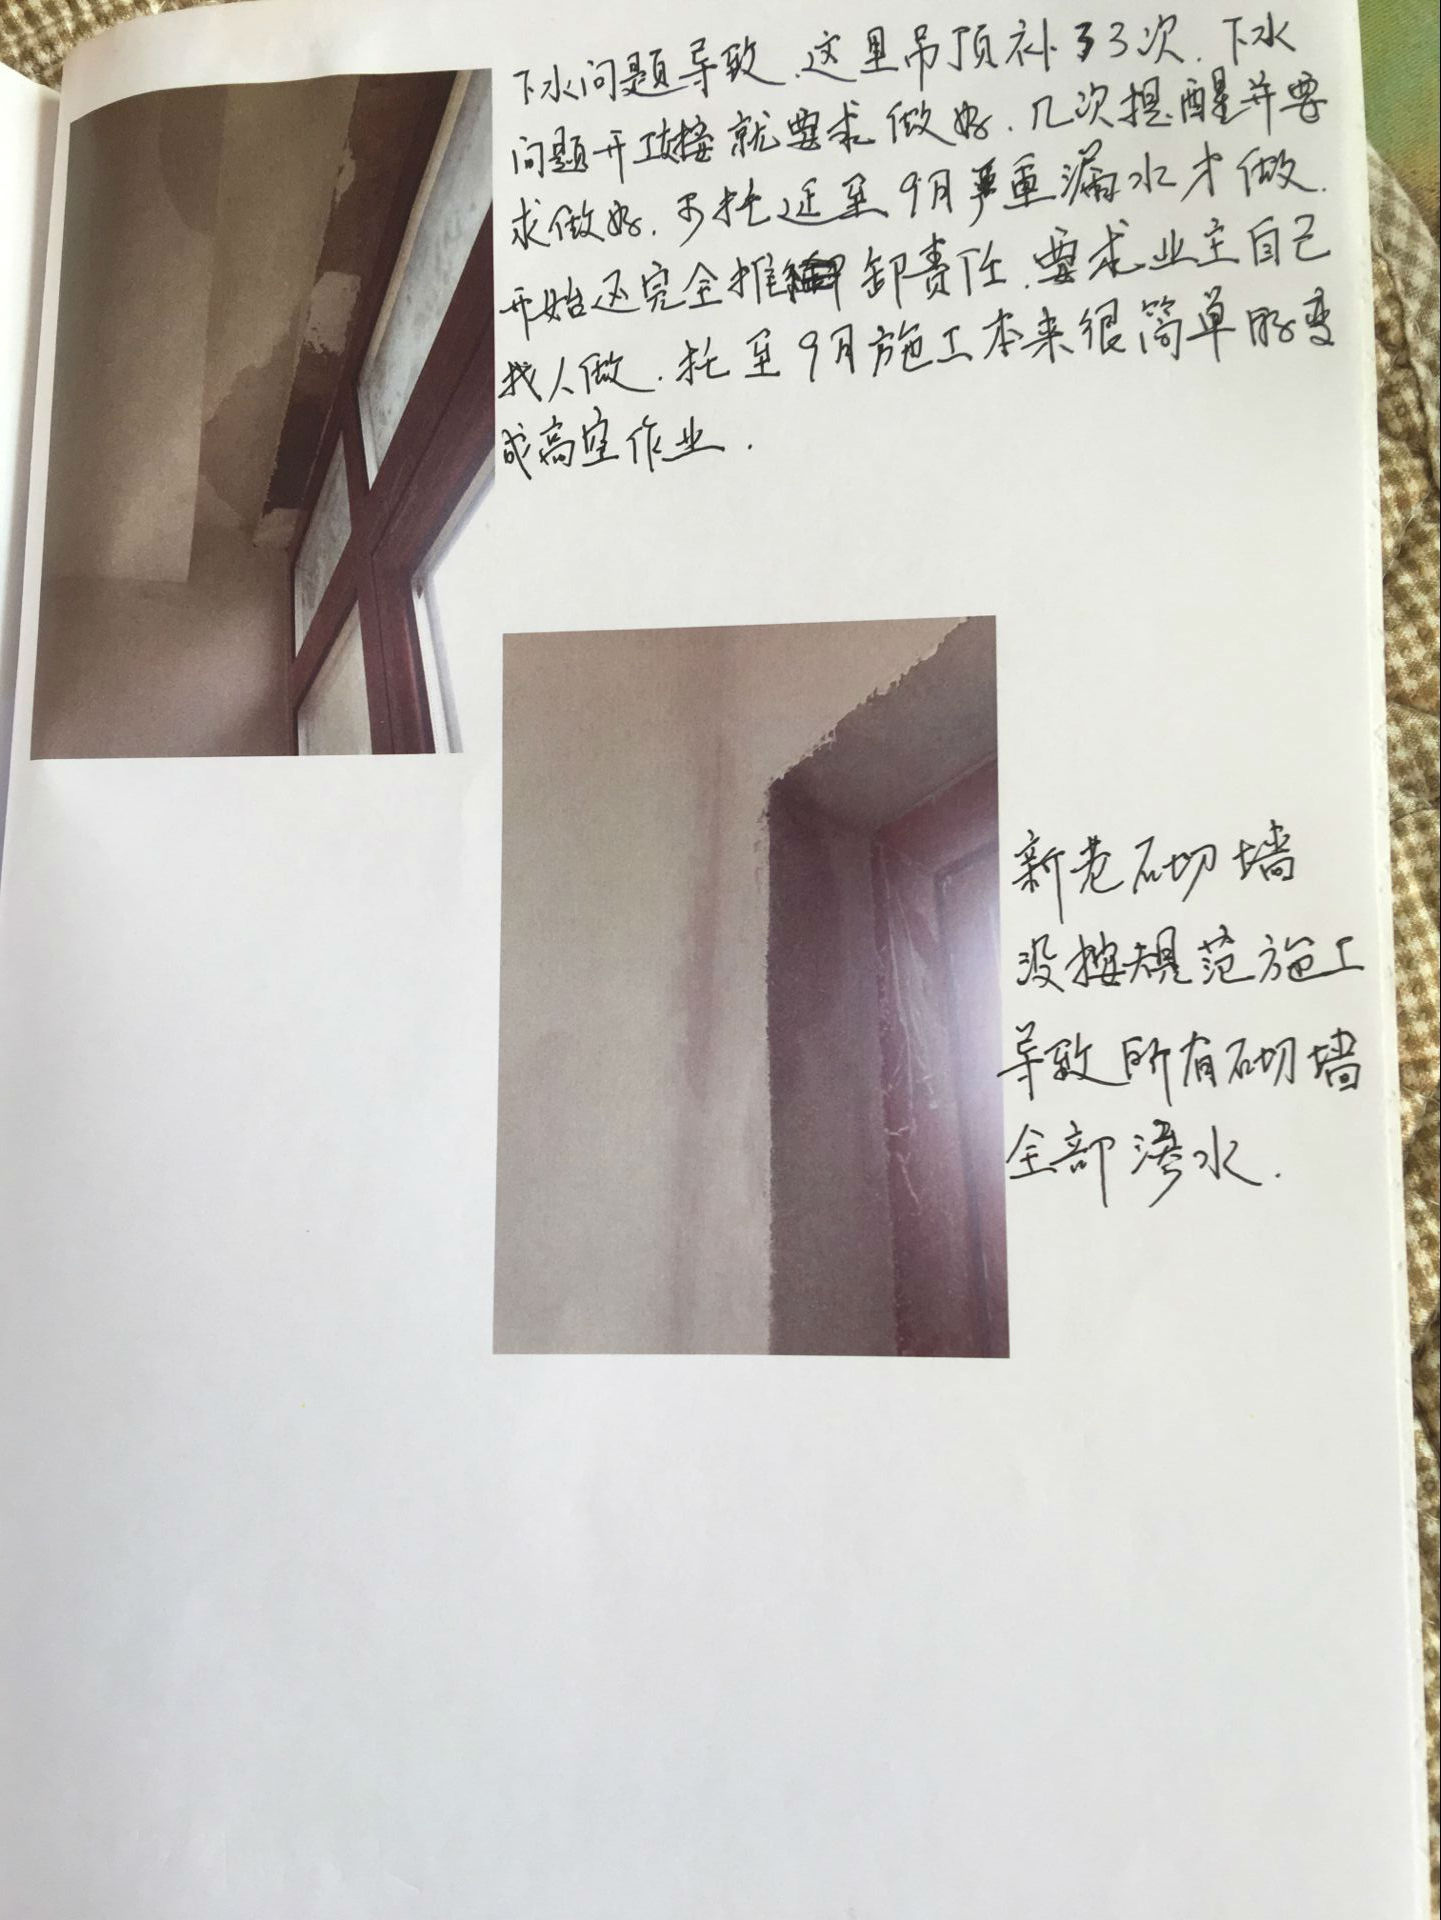 下水问题导致.这里吊顶补了3次.下水
问题开工就要求做好.几次提醒并要
求做好.才托延至9月严重漏水才做.
开始还完全推卸责任.要求业主自己
找人做.托至9月施工本来很简单的变
成高空作业.
新老石切墙
没按规范施工
导致所有砌墙
全部渗水.